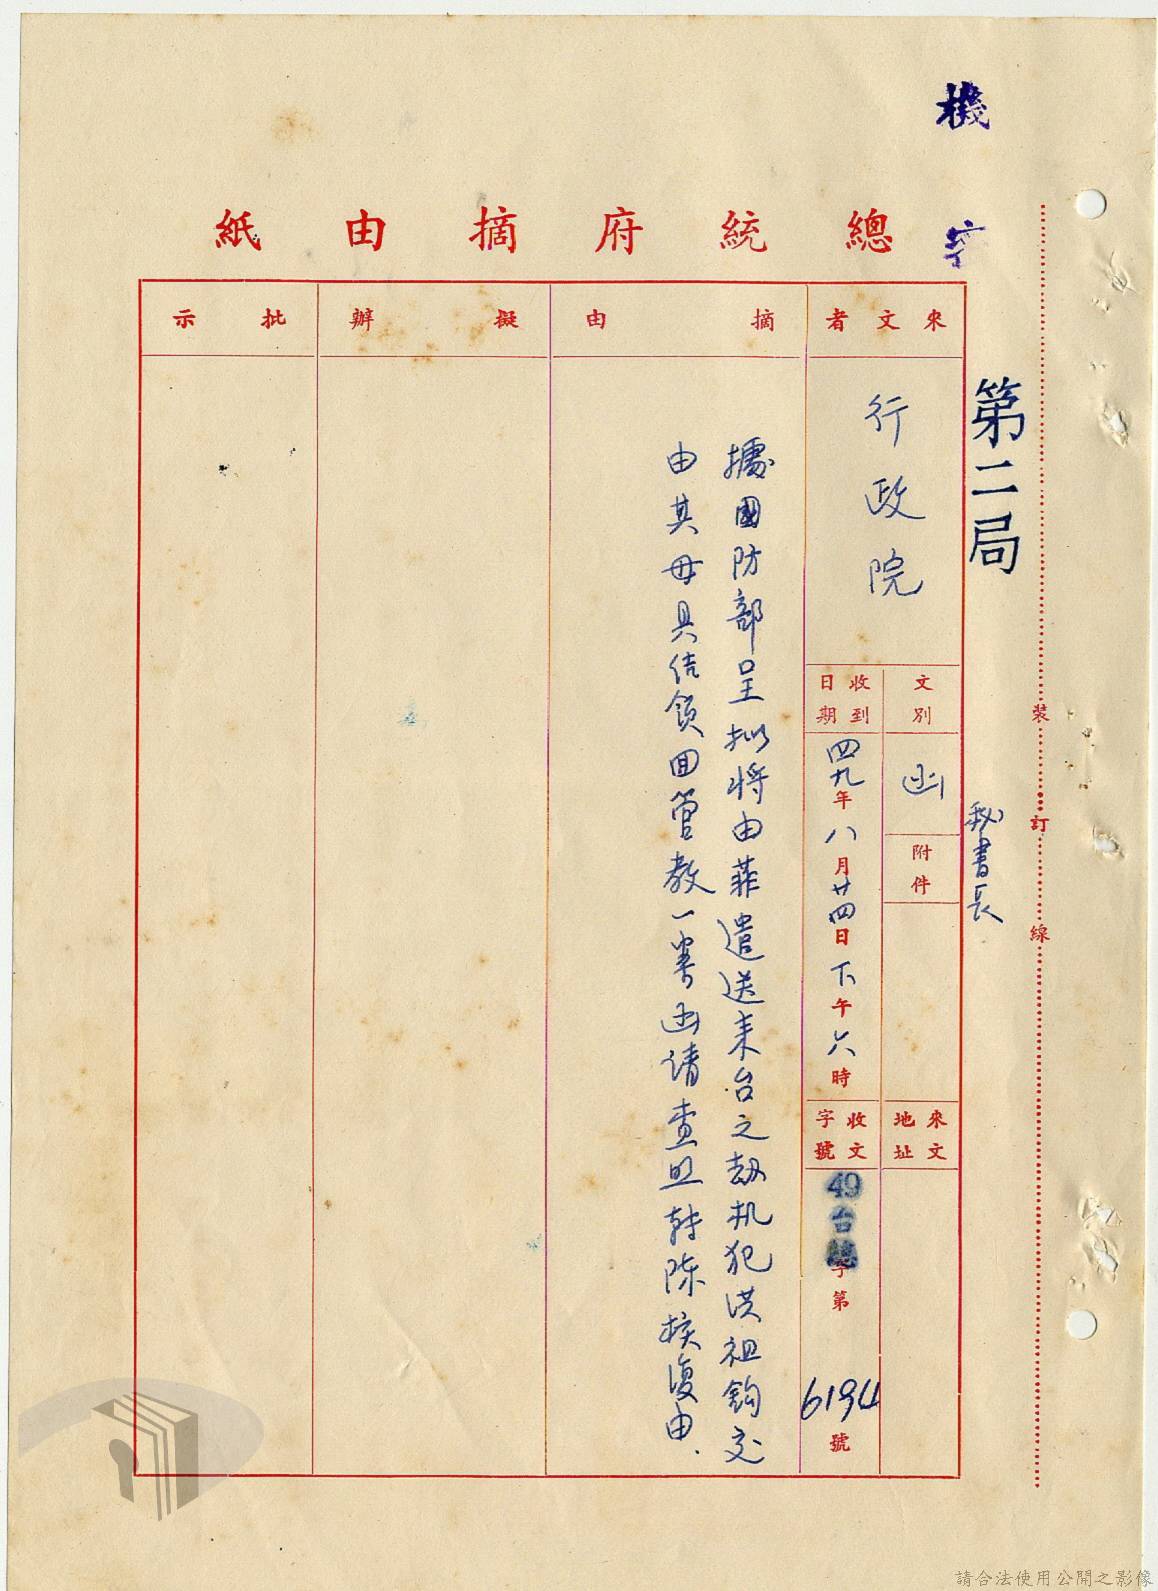 機
密
總統府摘由紙
第二局
秘書長
裝訂線
來文者
行政院
文別
函
附件
來文地址
收到日期
四九年八月廿四日下午六時
收文字號
49台總字第6194號
摘由
據國防部呈拟將由菲遣送来台之劫机犯洪祖鈎交
由其母具结領回管教一案函请查照转陈核復由.
擬辦
批示
請合法使用公開之影像